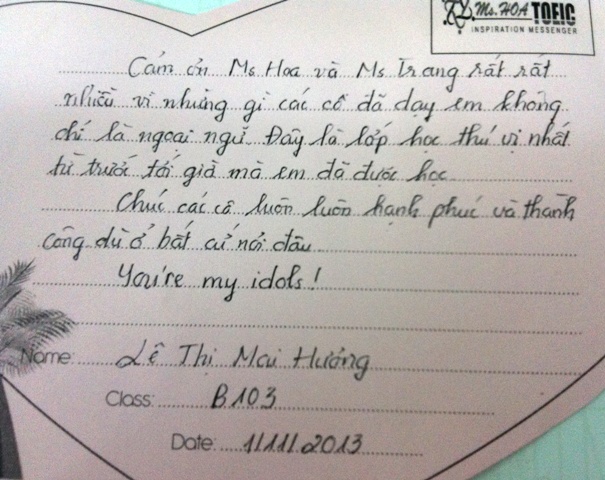 Ms. HOA TOEIC
INSPIRATION MESSENGER
Cảm ơn Ms Hoa và Ms Trang rất rất
nhiều vì những gì các cô đã dạy em không
chỉ là ngoại ngữ. Đây là lớp học thú vị nhất
từ trước tới giờ mà em đã được học
Chúc các cô luôn luôn hạnh phúc và thành
công dù ở bất cứ nơi đâu
You're my idols!
Name: Lê Thị Mai Hương
Class: B103
Date: 1/11/2013